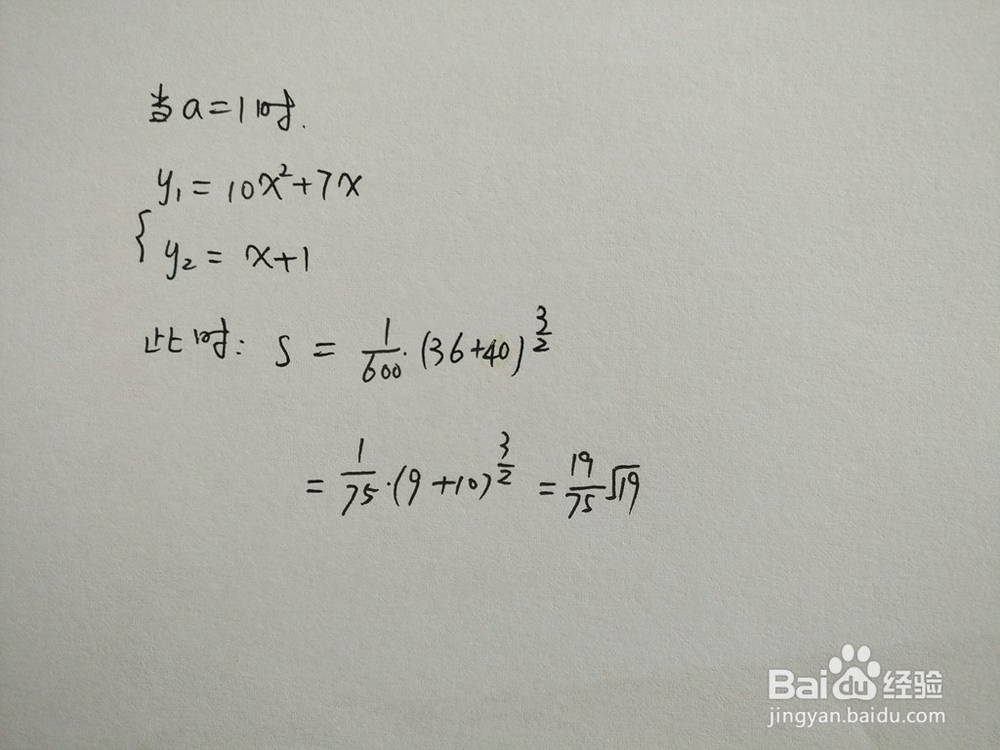 当a=1时.
y₁=10x²+7x
{y₂=x+1
此时: S=1/600·(36+40)^(3/2)
=1/75·(9+10)^(3/2)=19/75√19
Baidu经验
jingyan.baidu.com